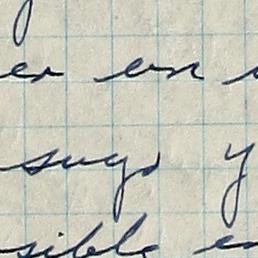 er en
suyo y
sible en